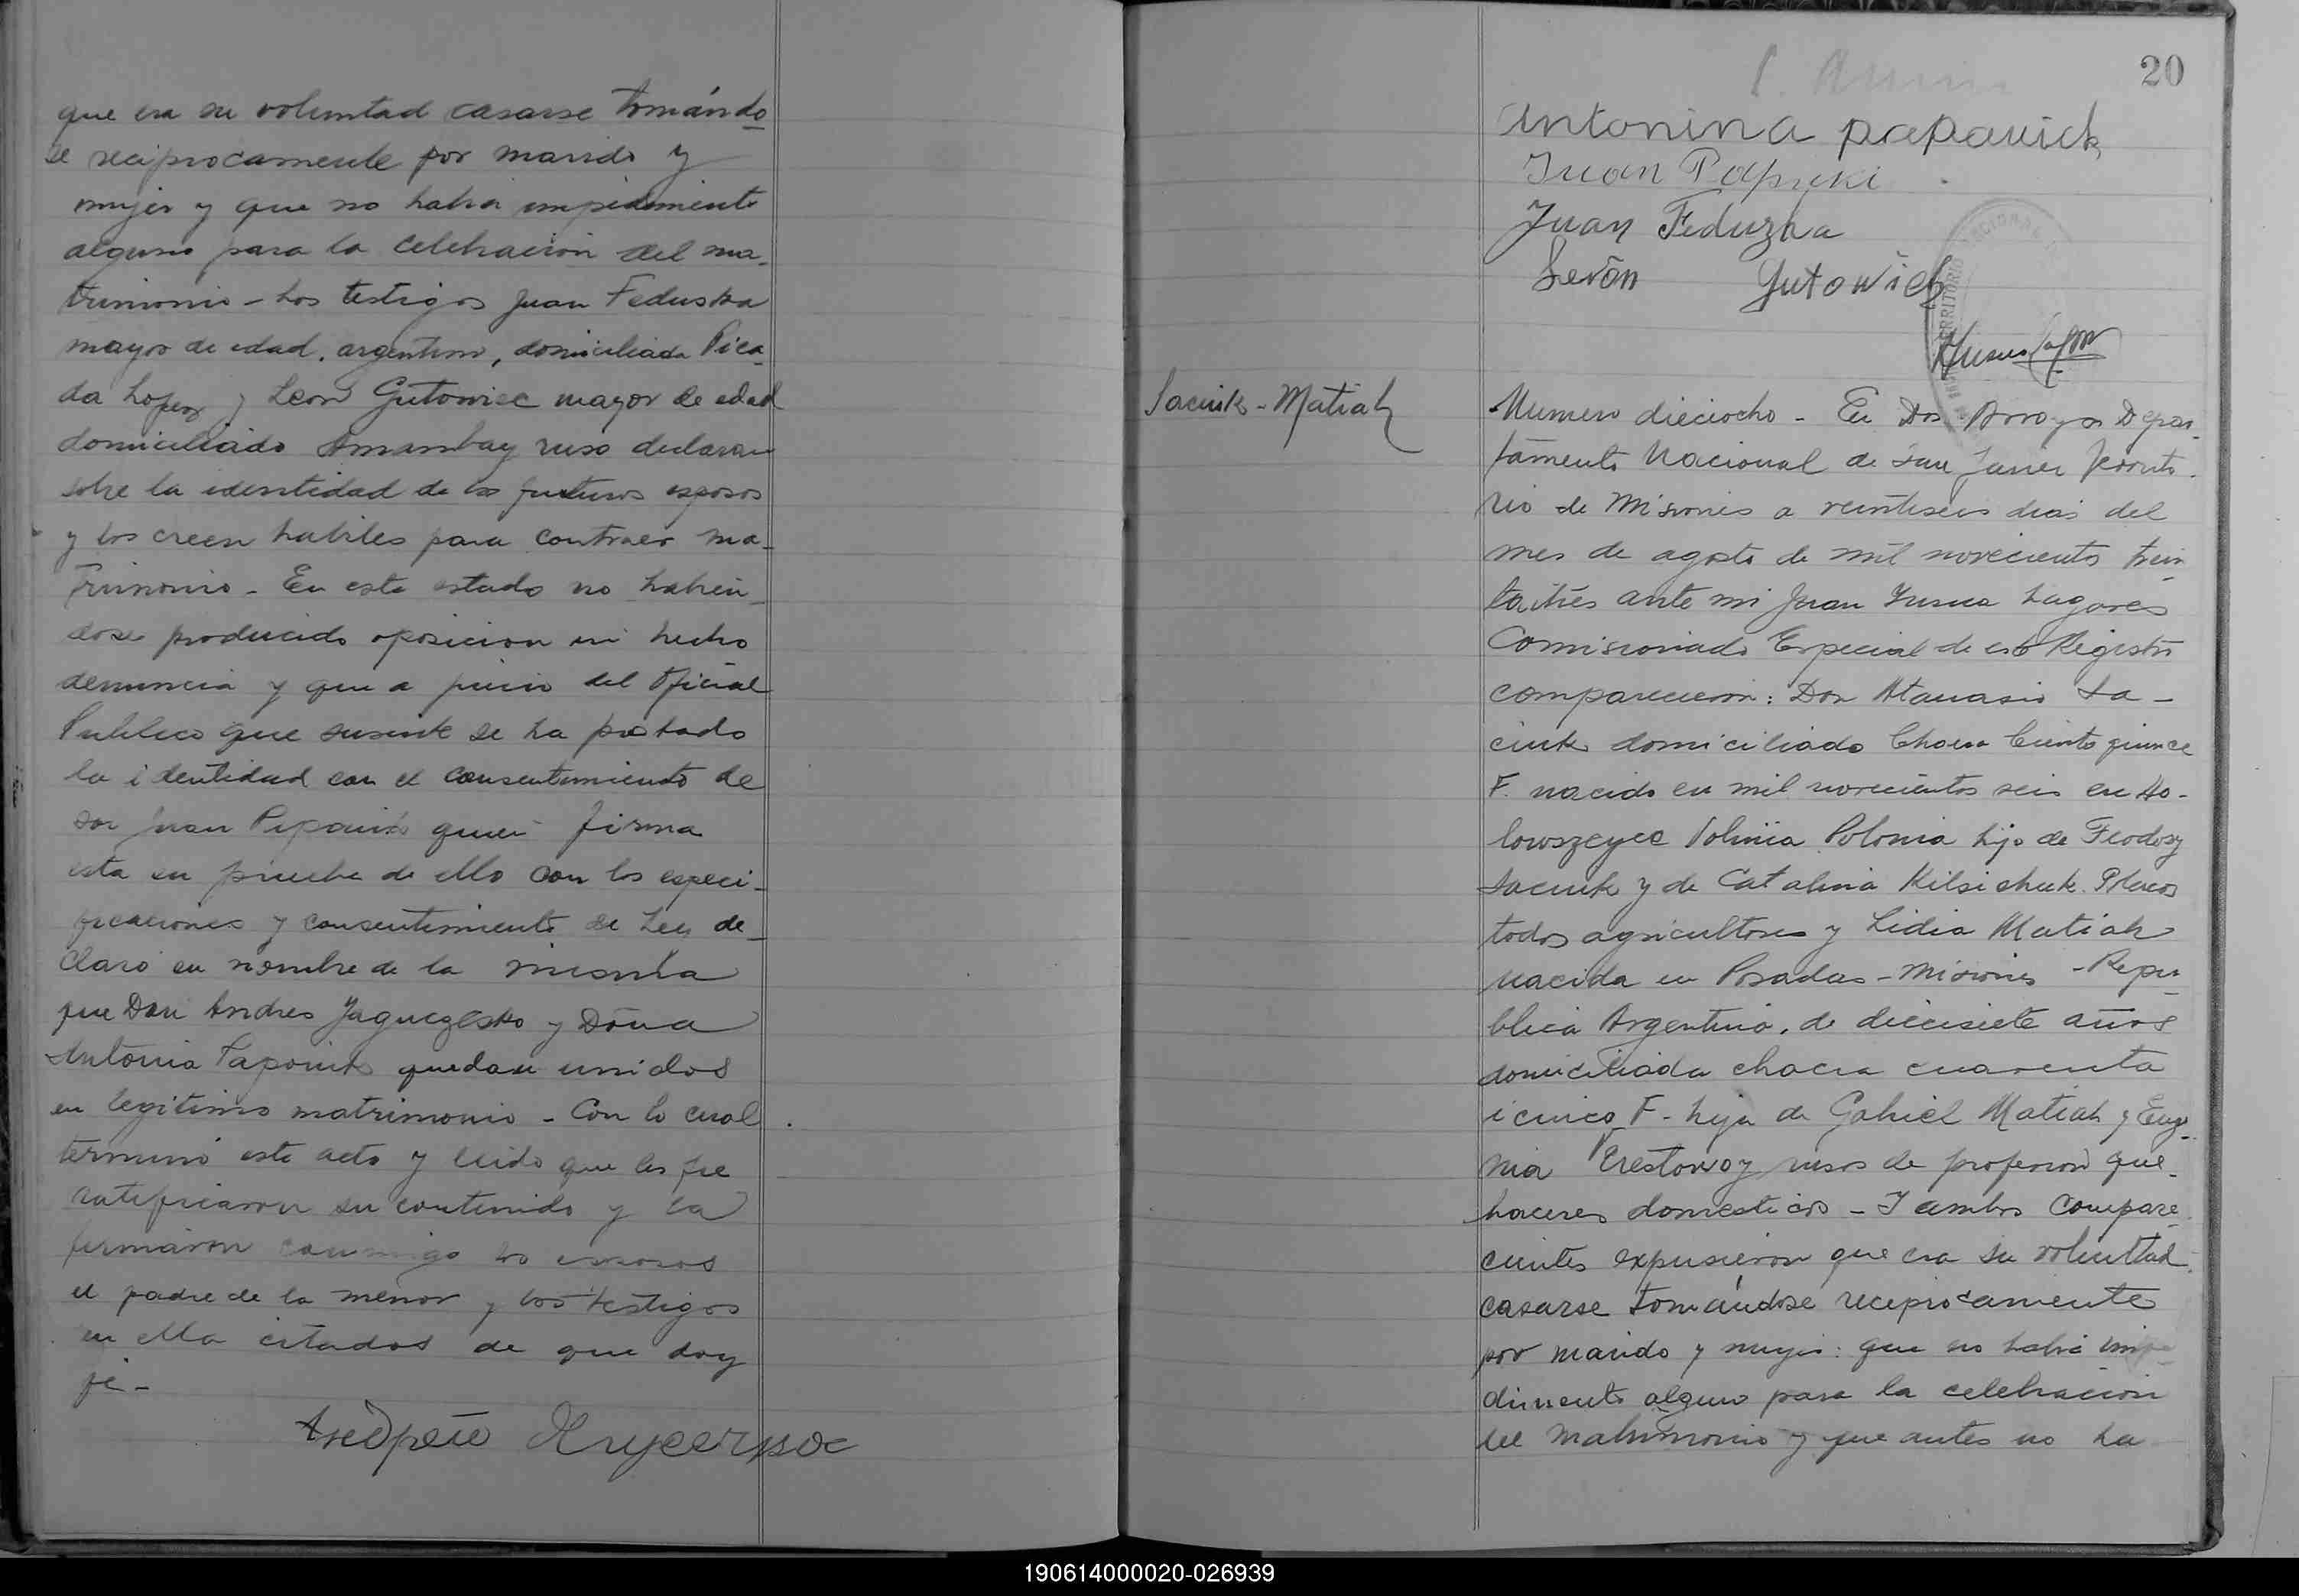 que era su voluntad casarse tomándo
se reciprocamente por marido y
mujer y que no habia impedimento
alguno para la celebración del ma-
trimonio - Los testigos Juan Feduska
mayor de edad, argentino, domiciliado Pica-
da Lopez y Leon Gutowiec mayor de edad
domiciliado Amambay ruso declaran
sobre la identidad de los futuros esposos
y los creen habiles para contraer ma-
trimonio - En este estado no habien-
dose producido oposicion ni hecho
denuncia y que a juicio del Oficial
Publico que suscribe se ha probado
la identidad con el consentimiento de
don Juan quien firma
esta en prueba de ello con las especi-
ficaciones y consentimiento de Ley de-
claro en nombre de la misma
que Don Andres y Doña
Antonia quedan unidos
en legitimo matrimonio - Con lo cual
termino este acto y leido que les fue
ratificaron su contenido y la
firmaron conmigo los esposos
el padre de la menor y los testigos
en ella citados de que doy
fé -
20
Antonina papavick
Juan
Juan Feduzka
León Gutowich
Saciuk - Matiak
Numero dieciocho - En Dos Arroyos Depar-
tamento Nacional de San Javier Territo-
rio de Misiones a veintiseis dias del
mes de agosto de mil novecientos trein
taitrés ante mi Juan Lagares
Comisionado Especial de este Registro
comparecieron: Don Atanasio Sa-
ciuk domiciliado Chacra Ciento quince
F. nacido en mil novecientos seis en Ho-
Polonia hijo de Feodosy
Saciuk y de Catalina Polacos
todos agricultores y Lidia Matiak
nacida en Posadas - Misiones - Repu-
blica Argentina, de diecisiete años
domiciliada chacra cuarenta
i cinco F - hija de Gabriel Matiak y Euge-
nia rusos de profesion que-
haceres domesticos - I ambos compare-
cientes expusieron que era su voluntad
casarse tomándose reciprocamente
por marido y mujer: que no habia impe-
dimento alguno para la celebracion
del matrimonio y que antes no ha
190614000020-026939